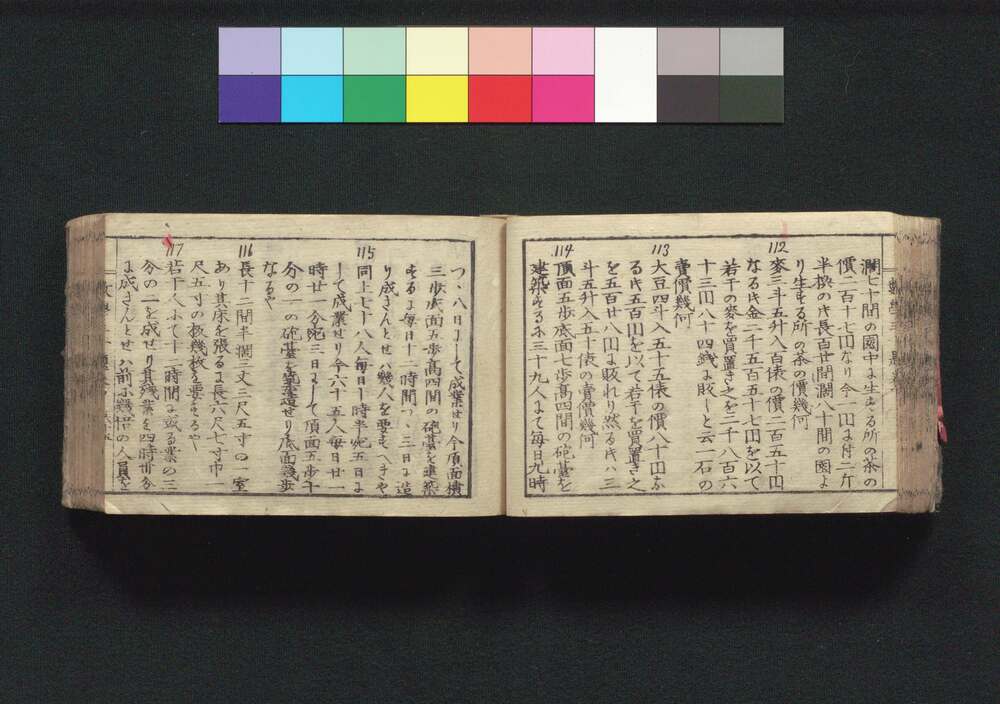 濶七十間の園中に生する所の茶の
價二百十七円なり今一円に付二斤
半換の代長百廿間濶八十間の園よ
り生する所の茶の價幾何
112
麥三斗五升八百俵の價二百五十円
なる代金二千五百五十七円を以て
若干の麥を買置き之を二千八百六
十三円八十四錢に敗しと云一石の
賣價幾何
113
大豆四斗入五十五俵の價八十円ふ
る代五百円を以て若干を買置き之
を五百廿八円に敗れり然る代ハ三
斗五升入五十俵の賣價幾何
114
頂面五歩底面七歩高四間の砲臺を
建築するふ三十九人にて毎日九時
つゝ八日にして成業せり今頂面積
三歩底面五歩高四間の砲臺を建築
するに毎日十一時間つゝ三日に造
り成さんとせハ幾人を要すへきや
115
同上七十八人毎日十時半宛五日に
して成業せり今六十五人毎日廿一
時廿一分宛三日にして頂面五歩十
分の一の砲臺を築造せり底面幾歩
なるや
116
長十二間半濶三丈三尺五寸の一室
あり其床を張るに長六尺七寸巾一
尺五寸の板幾枚を要するや
117
若干人ふて十一時間に或る業の三
分の二を成せり其殘業を四時卅分
に成さんとせハ前ふ幾倍の人員を